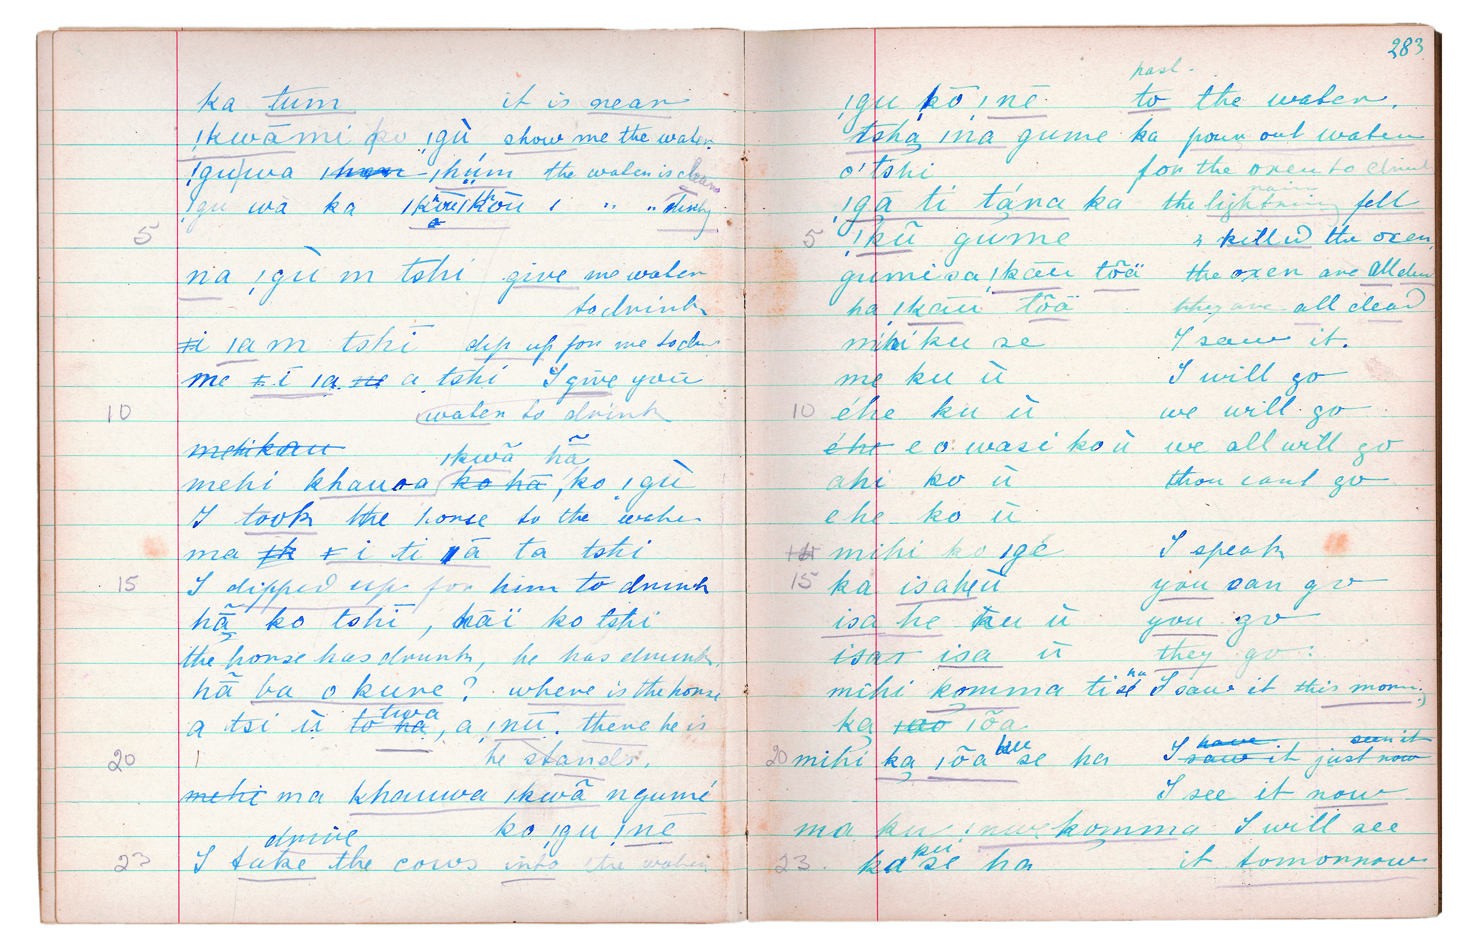 ka tum it is near
ǃkwāmi ko ǀgù show me the water
ǃguwa ǀhūm the water is clean
ǃgu wa ka ǀkōūǀkōū ǀ " " dirty
5
na ǀgù m tshi give me water
to drink
ǂi ǀa m tshi dip up for me to drink
me ǂi ǀa ne a tshi I give you
10 water to drink
mehikau
ǀkwā hā
mehi khauoa ko hā, ko ǀgù
I took the horse to the water
ma ǂk ǂi ti ā ta tshi
15 I dipped up for him to drink
hā ko tshī, hāï ko tshi
the horse has drunk, he has drunk.
hā ba o kure? where is the horse
a tsi ù to ha tuwa, a ǀnū. there he is
20 he stands.
mehi ma khauwa ǀkwā ngumé
drive ko ǀgu ǃnē
23 I take the cows into the water
283
past.
ǀgu kō ǀnē to the water.
tsha ǀna gume ka pour out water
o'tshi for the oxen to drink
rain
ǃgā tí tána ka the lightning fell
5 ǃkū gúme & killed the oxen
gumisa ǀkāu tôä the oxen are all dead
ha ǀkāū tôä they are all dead
mihi ku se I saw it.
me ku ù I will go
10 éhe ku ù we will go
éhe e o wasi ko ù we all will go
ahi ko ù thou cant go
ehe ko ù
14 mihi ko ǀgé I speak
15 ka isaheù you can go
isa he ku ù you go
isar isa ù they go.
mihi komma ti sé ha I saw it this morn.
ka ǀao ǀōa
20 mihi ka ǀōa ku se ha I have saw it seen it just now
I see it now
ma ku ǀnwe komma I will see
23 ka ku se ha it tomorrow